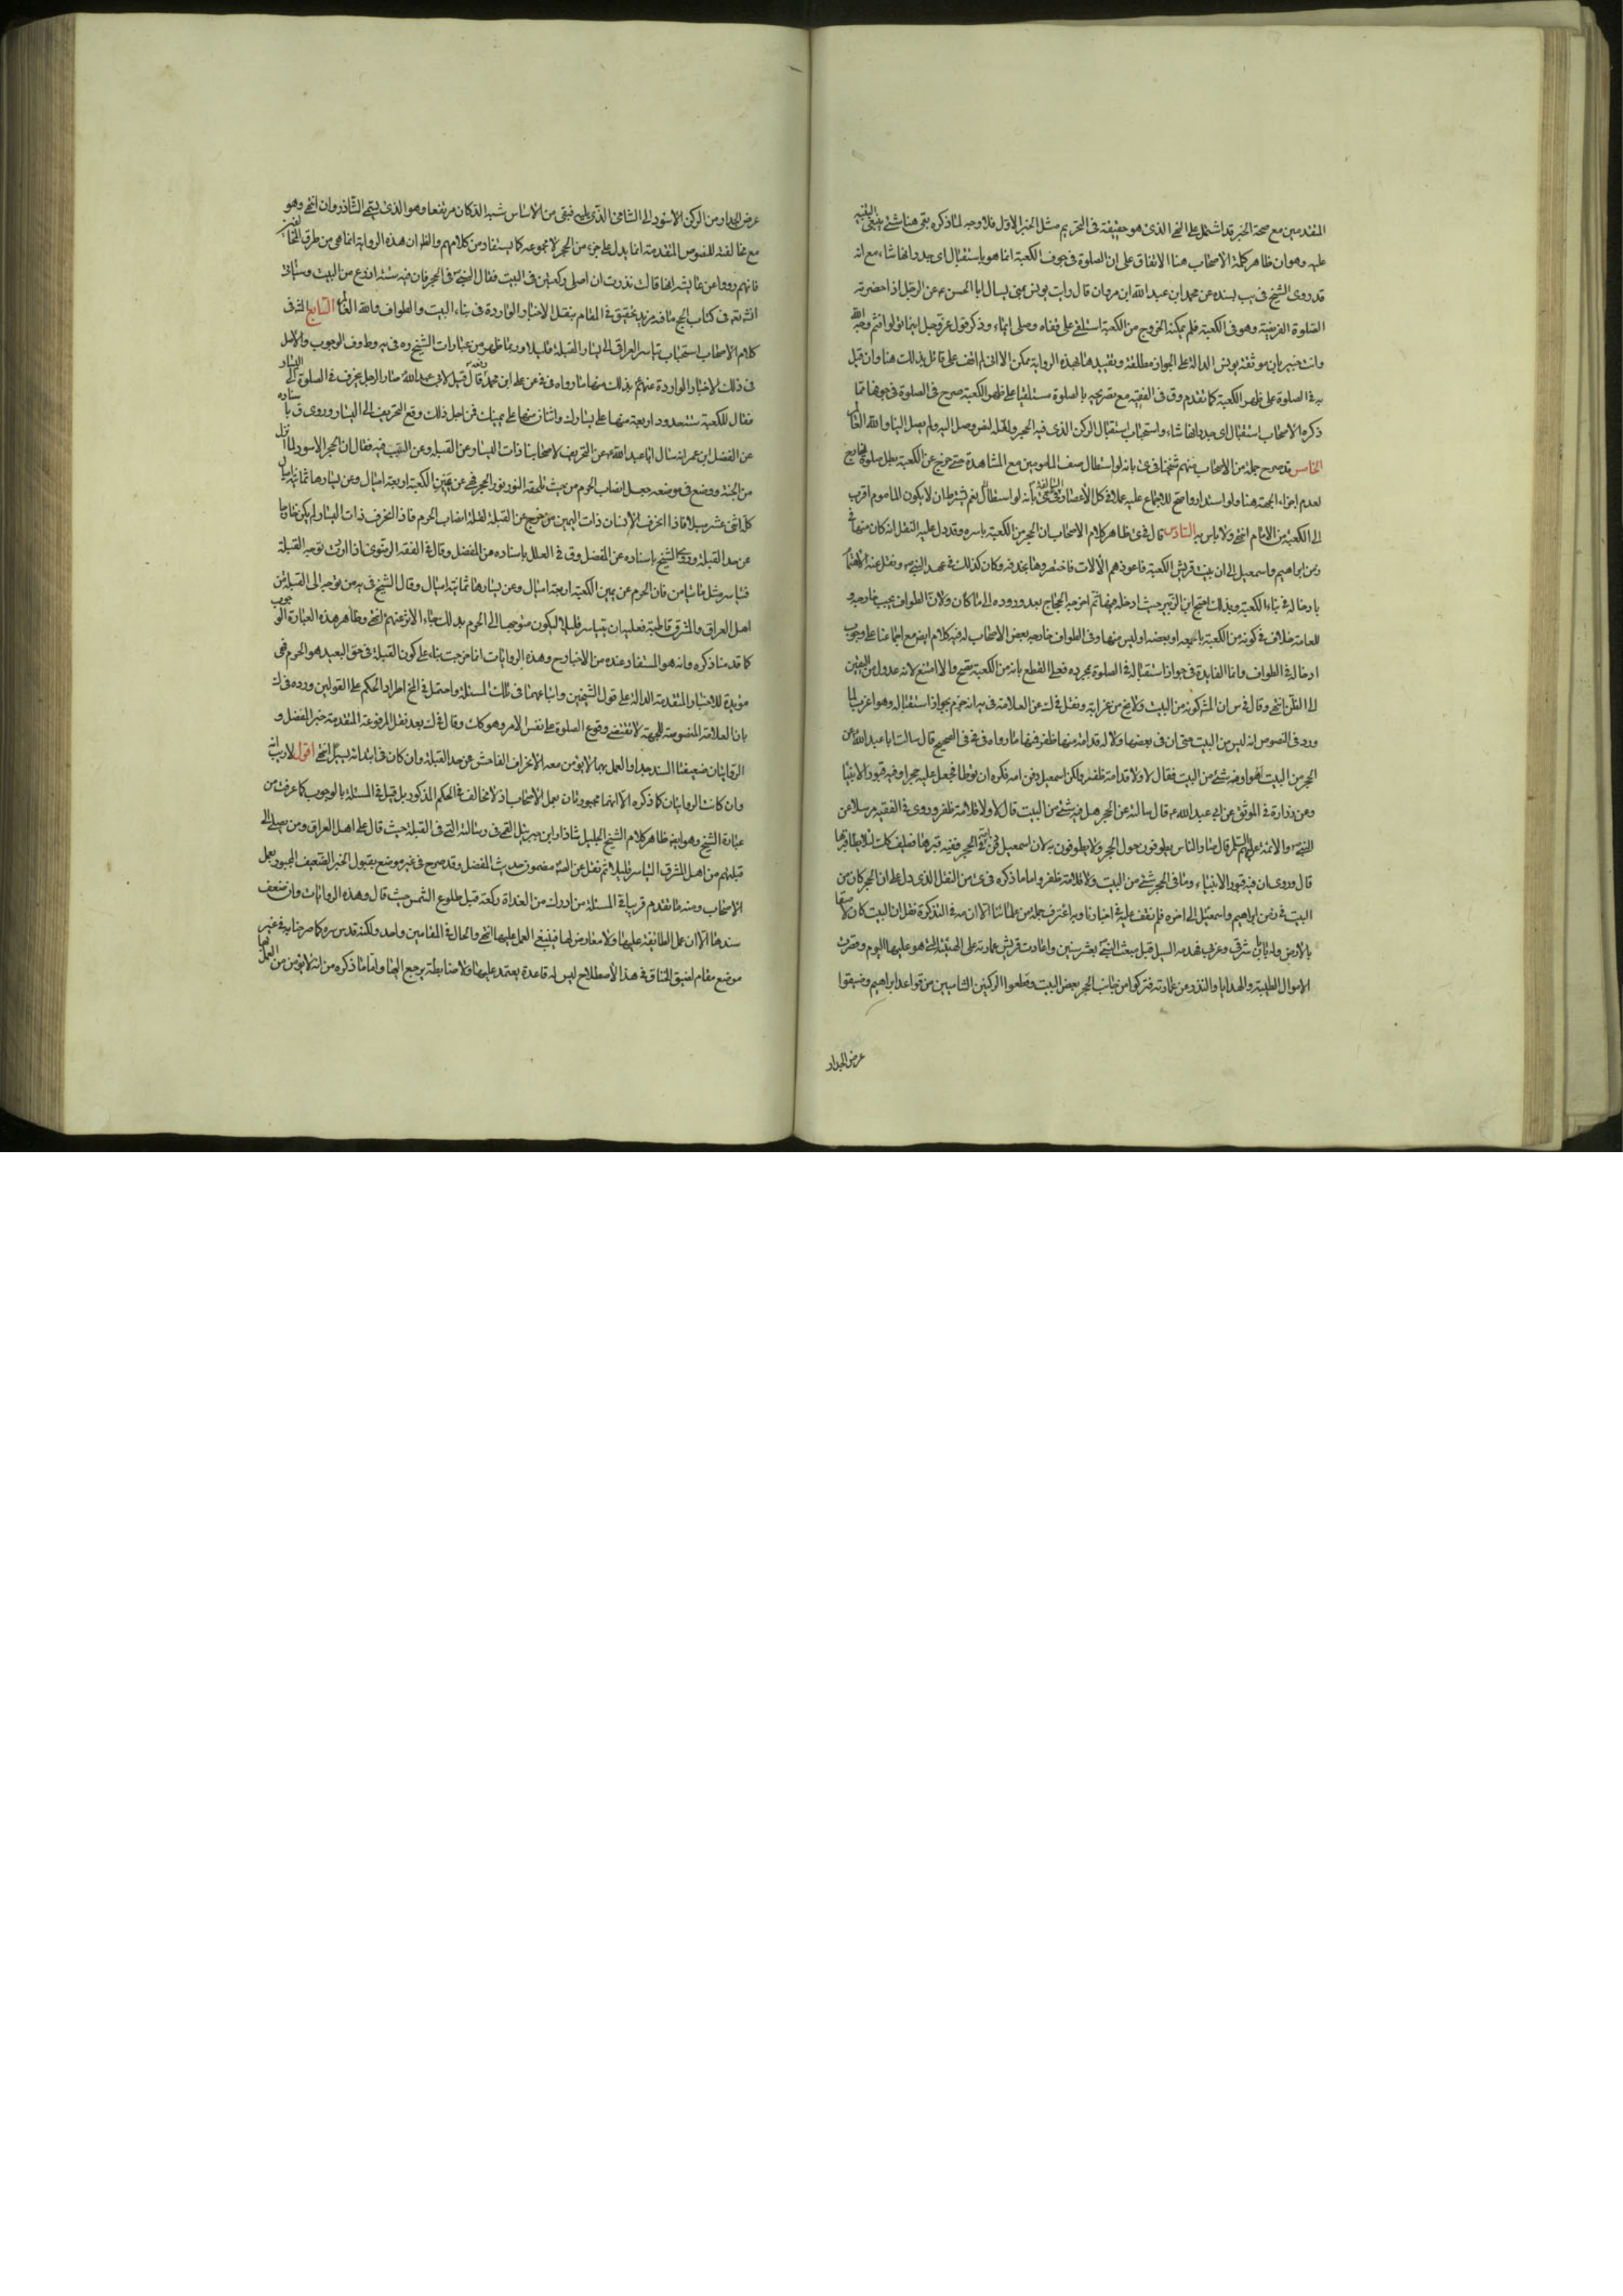 المتقدمين مع صحة الخبر قد اشتمل على النهي الذي هو حقيقة في التحريم مثل الخبر الاول فلا وجه لما ذكره بقي هنا شئ ينبغي التنبيه
عليه وهو ان ظاهر كلمة الاصحاب هنا الاتفاق على ان الصلوة في جوف الكعبة انما هو باستقبال اي جدرانها شاء مع انه
قد روى الشيخ في يب بسنده عن محمد ابن عبد الله ابن مروان قال رايت يونس بمنى يسال ابا الحسن ع عن الرجل اذا حضرته
الصلوة الفريضة وهو في الكعبة فلم يمكنه الخروج من الكعبة استلقى على قفاه وصلى ايماء وذكر قول عز وجل اينما تولوا فثم وجه الله
وانت خبير بان موثقة يونس الدالة على الجواز مطلقة وتقييدها بهذه الرواية ممكن الا انى لم اقف على قائل بذلك هنا وان قيل
به في الصلوة على ظهر الكعبة كما تقدم وق في الفقيه مع تصريحه بالصلوة مستلقيا على ظهر الكعبة صرح في الصلوة في جوفها بما
ذكره الاصحاب استقبال اي جدرانها شاء واستحباب استقبال الركن الذي فيه الحجر ولعله لنص وصل اليه ولم يصل الينا والله العالم
الخامس قد صرح جملة من الاصحاب منهم شيخنا في ى بانه لو استطال صف المامومين مع المشاهدة حتى خرج عن الكعبة بطل صلوة الخارج
لعدم اجزاء الجهة هنا ولو استداروا صح للاجماع عليه عملا في كل الاعصار بانه لو استطال نعم يشترط ان لا يكون الماموم اقرب
الى الكعبة من الامام انتهى ولا باس به السادس قال في ى ظاهر كلام الاصحاب ان الحجر من الكعبة باسره وقد دل عليه النقل انه كان منها في
زمن ابراهيم واسمعيل الى ان بنت قريش الكعبة فاعوزهم الالات فاختصروها بحذفه وكان كذلك في عهد النبي ص ونقل عنه الاهتمام
بادخاله في بناء الكعبة وبذلك احتج ابن الزبير حيث ادخله فيها ثم اخرجه الحجاج بعده ورده الى ما كان ولان الطواف يجب خارجه و
للعامة خلاف في كونه من الكعبة باجمعه او بعضه او ليس منها وفي الطواف خارجه بعض الاصحاب له فيه كلام ايضا مع اجماعنا على وجوب
ادخاله في الطواف وانما الفايدة في جواز استقباله في الصلوة بمجرده فعلى القطع بانه من الكعبة يصح والا امتنع لانه عدول من اليقين
الى الظن انتهى وقال في س ان المشهور كونه من البيت ولا يخ من غرابة ونقل في ك عن العلامة في يه انه جزم بجواز استقباله وهو اغرب لما
ورد في النصوص انه ليس من البيت حتى ان في بعضها ولا قلامة ظفر فمنها ما رواه في في في الصحيح قال سالت ابا عبد الله ع عن
الحجر من البيت هو او فيه شئ من البيت فقال لا ولا قلامة ظفر ولكن اسمعيل دفن امه فكره ان يوطا فجعل عليه حجرا وفيه قبور الانبياء
وعن زرارة في الموثق عن ابي عبد الله ع قال سالته عن الحجر هل فيه شئ من البيت قال لا ولا قلامة ظفر وروى في الفقيه مرسلا عن
النبي والائمة عليهم السلم قال صار الناس يطوفون حول الحجر ولا يطوفون به لان ام اسمعيل دفنت في الحجر ففيه قبرها فطيف كذلك لئلا يوطا قبرها
قال وروى ان فيه قبور الانبياء وما في الحجر شئ من البيت ولا قلامة ظفر واما ما ذكره في ى من النقل الذي دل على ان الحجر كان من
البيت في زمن ابراهيم واسمعيل الى اخره فلم نقف عليه في اخبارنا وبه اعترف جملة من علمائنا الا ان مه في التذكرة نقل ان البيت كان لاصقا
بالارض وله بابان شرقي وغربي فهدمه السيل قبل مبعث النبي ص بعشر سنين واعادت قريش عمارته على الهيئة التي هو عليها اليوم وقصرت
الاموال الطيبة والهدايا والنذور عن عمارته فتركوا من جانب الحجر بعض البيت وقطعوا الركنين الشاميين من قواعد ابراهيم وضيقوا
عرض الجدار
عرض الجدار من الركن الاسود الى الشامي الذي يليه فبقي من الاساس شبه الدكان مرتفعا وهو الذي يسمى الشاذروان انتهى وهو
مع مخالفته للنصوص المتقدمة انما يدل على جزء من الحجر لا مجموعه كما يستفاد من كلامهم والظ ان هذه الرواية انما هي من طرق المخالفين
فانهم رووا عن عايشه انها قالت نذرت ان اصلى ركعتين في البيت فقال النبي ص في الحجر فان فيه ستة اذرع من البيت وسياتي
انش تع في كتاب الحج ما فيه مزيد تحقيق في المقام بنقل الاخبار الواردة في بناء البيت والطواف والله العالم السابع المش في
كلام الاصحاب استحباب تياسر العراقي الى يسار القبلة قليلا وربما ظهر من عبارات الشيخ ره في يه وط وف الوجوب والاصل
في ذلك الاخبار الواردة عنهم ع بذلك منها ما رواه في في عن علي ابن محمد رفعه قال قيل لابي عبد الله ع صار الرجل ينحرف في الصلوة الى اليسار
فقال للكعبة ستة حدود اربعة منها على يسارك واثنان منها على يمينك فمن اجل ذلك وقع التحريف الى اليسار وروى ق باسناده
عن المفضل ابن عمر انه سال ابا عبد الله ع عن التحريف لاصحابنا ذات اليسار عن القبلة وعن السبب فيه فقال ان الحجر الاسود لما انزل
من الجنة ووضع في موضعه جعل انصاب الحرم من حيث يلحقه النور نور الحجر فهي عن يمين الكعبة اربعة اميال وعن يسارها ثمانية اميال
كله اثنى عشر ميلا فاذا انحرف الانسان ذات اليمين خرج عن القبلة لقلة انصاب الحرم فاذا انحرف ذات اليسار لم يكن خارجا
عن حد القبلة وروى الشيخ باسناده عن المفضل وق في العلل باسناده عن المفضل وقال في الفقه الرضوى اذا اردت توجه القبلة
فتياسر مثلي ما تيامن فان الحرم عن يمين الكعبة اربعة اميال وعن يسارها ثمانية اميال وقال الشيخ في يه من توجه الى القبلة من
اهل العراق والمشرق قاطبة فعليه ان يتياسر قليلا ليكون متوجها الى الحرم بذلك جاء الاثر عنهم ع انتهى وظاهر هذه العبارة الوجوب
كما قدمنا ذكره وانه هو المستفاد عنده من الاخبار وهذه الروايات انما خرجت بناء على كون القبلة في حق البعيد هو الحرم فهي
مؤيدة للاخبار المتقدمة الدالة على قول الشيخين واتباعهما في تلك المسئلة واحتمل في الخ اطراد الحكم على القولين ورده في ك
بان العلامة المنصوصة للجهة لا تقتضي وقوع الصلوة على نفس الامر وهو كك وقال في ك بعد نقل المرفوعة المتقدمة خبر المفضل و
الروايتان ضعيفتا السند جدا والعمل بهما لا يؤمن معه الانحراف الفاحش عن حد القبلة وان كان في ابتدائه يسيرا انتهى اقول لا ريب انه
وان كانت الروايتان كما ذكره الا انهما مجبورتان بعمل الاصحاب اذ لا مخالف في الحكم المذكور بل قيل في المسئلة بالوجوب كما عرفت من
عبارة الشيخ وهو ايضا ظاهر كلام الشيخ الجليل شاذان ابن جبرئيل القمي في رسالته التي في القبلة حيث قال على اهل العراق ومن يصلى الى
قبلتهم من اهل المشرق التياسر قليلا ثم نقل عن الصه مضمون حديث المفضل وقد صرح في غير موضع بقبول الخبر الضعيف المجبور بعمل
الاصحاب ومنه ما تقدم قريبا في المسئلة من ادرك من الغداة ركعة قبل طلوع الشمس حيث قال وهذه الروايات وان ضعف
سندها الا ان عمل الطائفة عليها ولا معارض لها فينبغي العمل عليها انتهى والحال في المقامين واحد ولكنه قدس سره كما صرحنا به في غير
موضع مقام لضيق الخناق في هذا الاصطلاح ليس له قاعدة يعتمد عليها ولا ضابطة يرجع اليها واما ما ذكره من انه لا يؤمن من العمل بهما